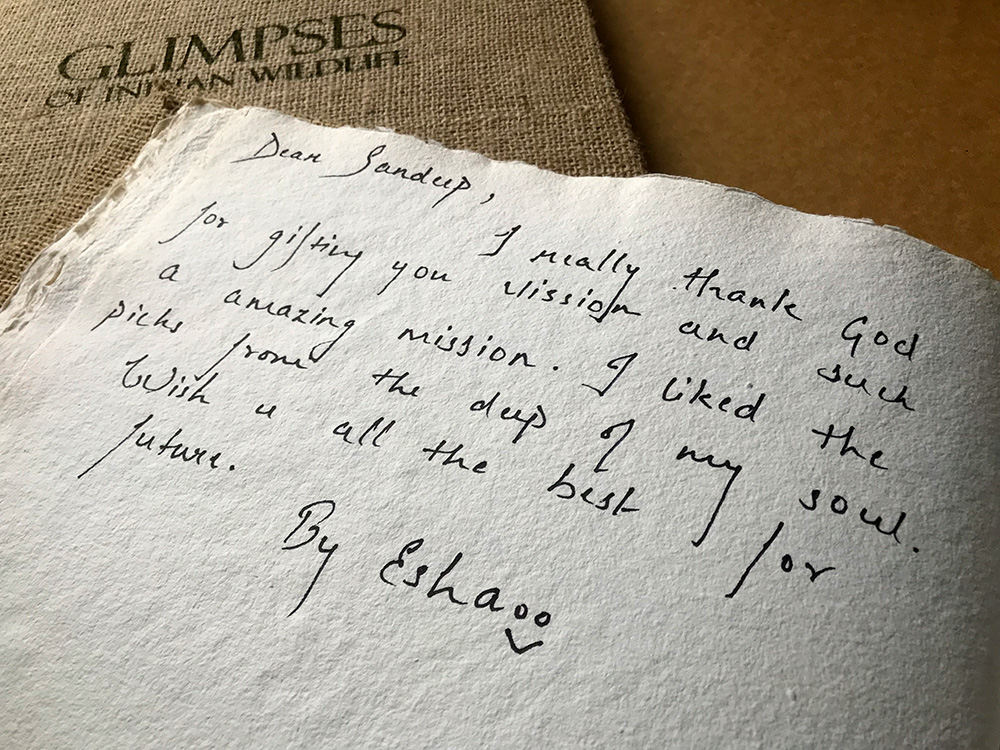 GLIMPSES
OF INDIAN WILDLIFE
Dear Sandeep,
I really thank God
for gifting you vission and such
a amazing mission. I liked the
picks from the deep of my soul.
Wish u all the best for
future.
By Esha